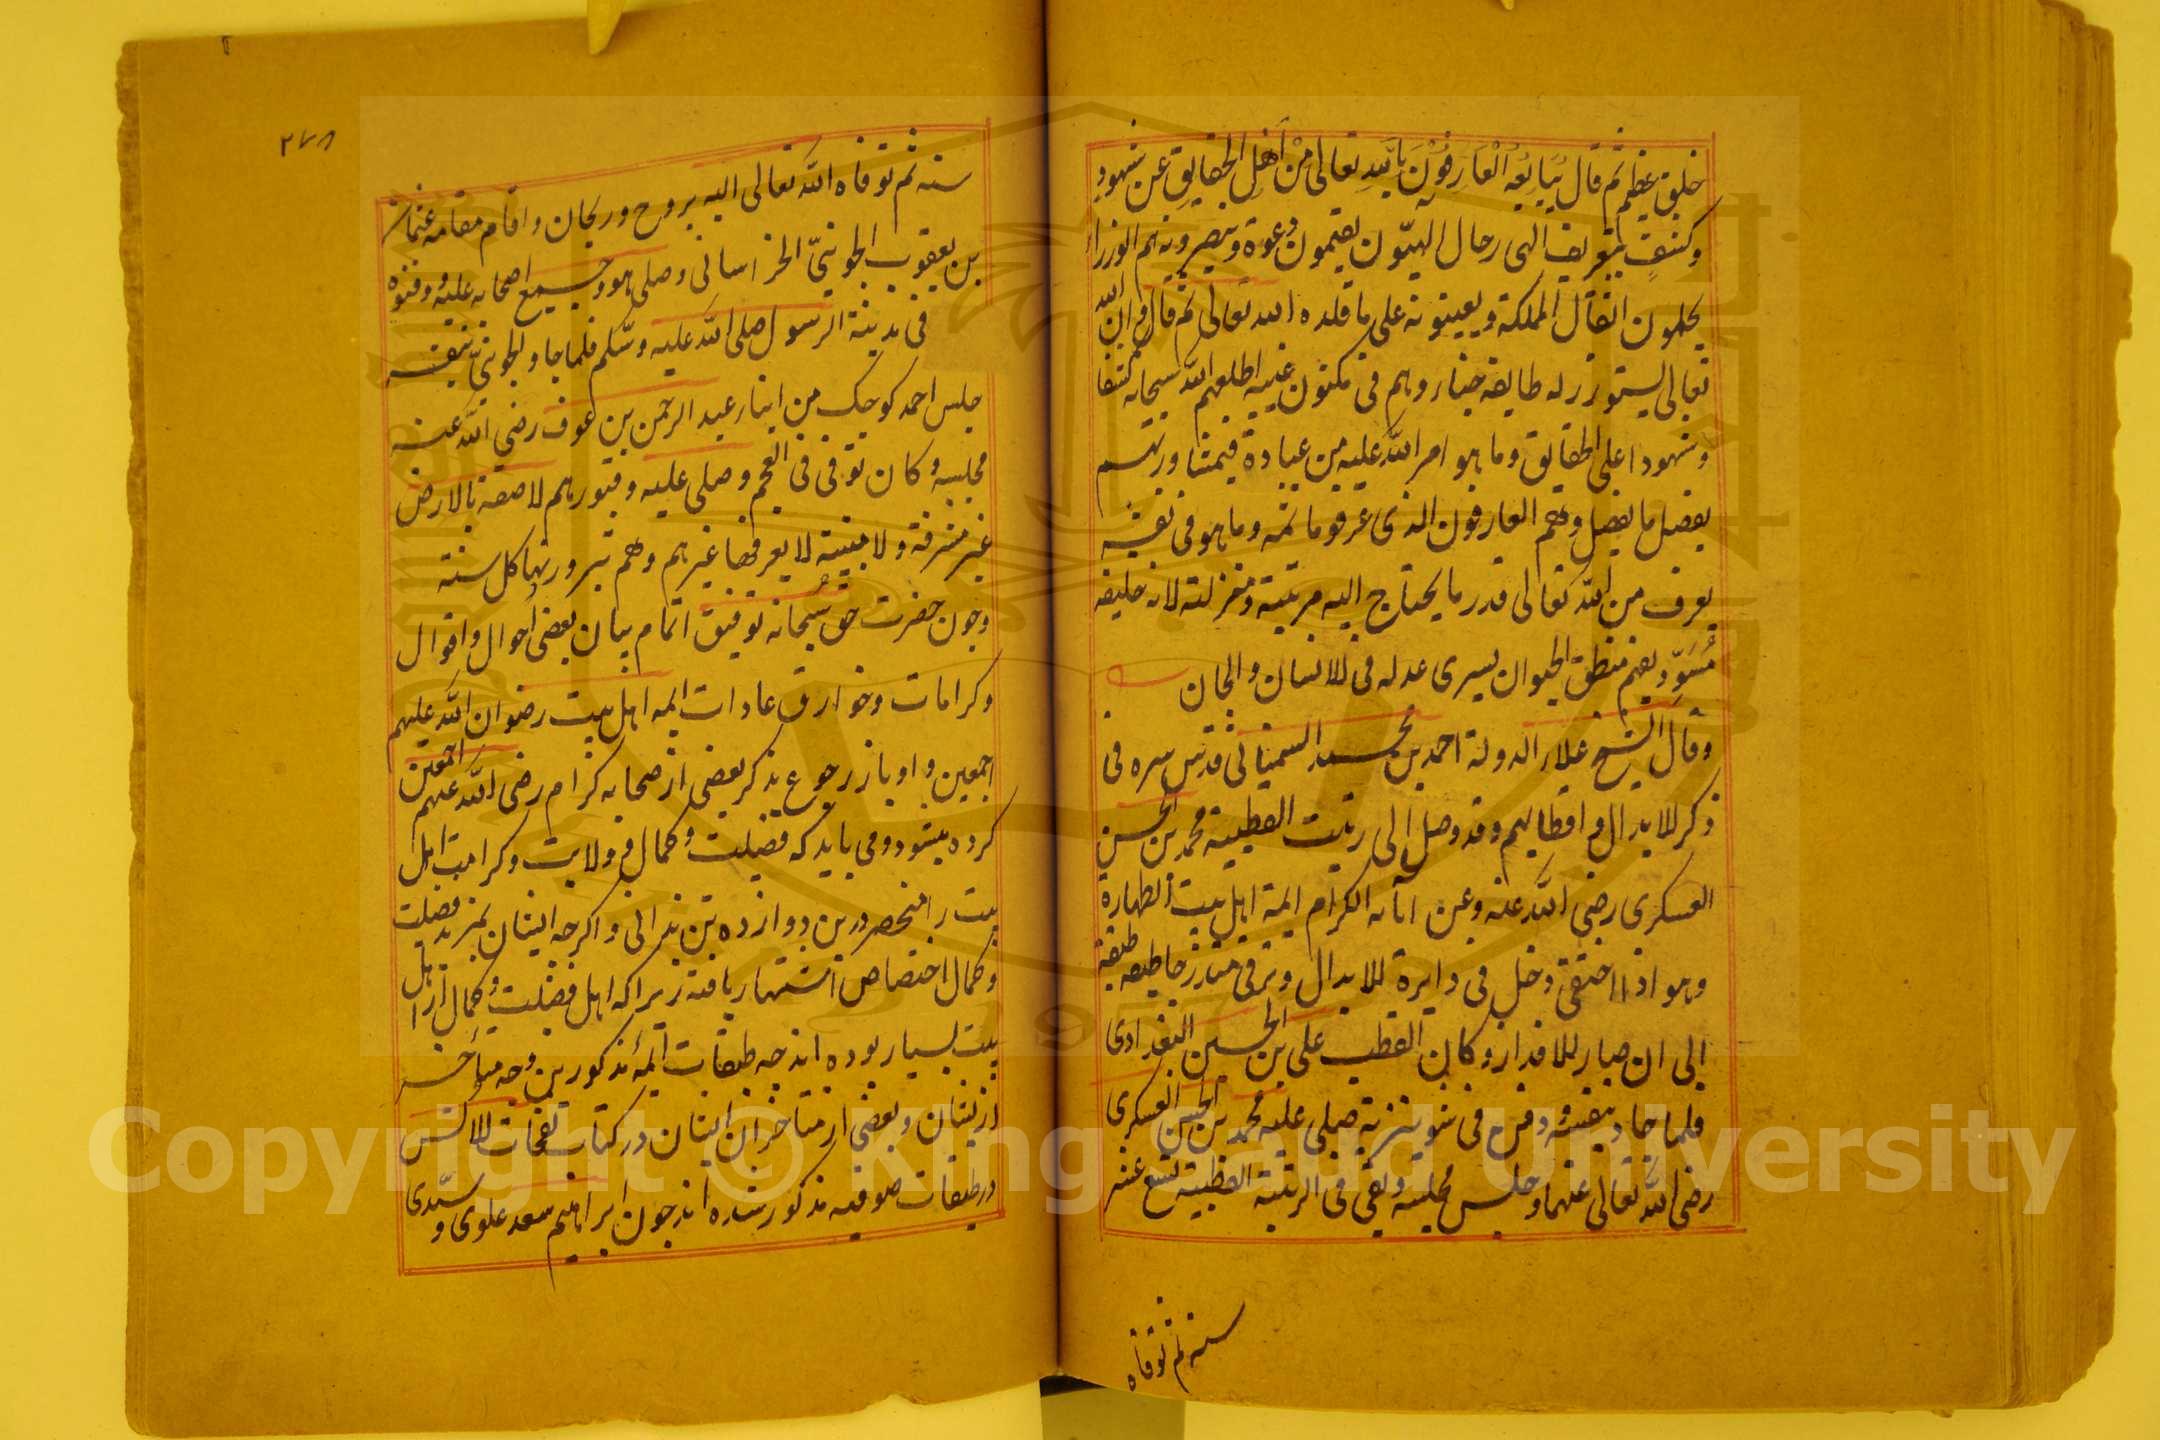 خلق عظیم ثم قال یُبَایِعُه الْعَارِفُوْنَ بِاللهِ تعالی مِنْ اَهْلِ الحقایِقِ عن شهودٍ
وکشفٍ بتعریف الهی رجال الهیّون یقیمون دعوة وینصرونه هم الوزراء
یحملون اثقال المملکة ویعینونه علی ما قلده الله تعالی ثم قال وان الله
تعالی یستوزر له طایفة خباء وهم فی مکنون غیبه اطلعهم الله سبحانه کشفا
وشهودا علی الحقایق وما هو امر الله علیه من عبادة فبمشاورتهم
یفصل ما یفصل وهم العارفون الذی عرفوا ما ثمه وما هو فی نفسه
یعرف من الله تعالی قدر ما یحتاج الیه مرتبته ومنزلته لانه خلیفة
مُسَوّد یفهم منطق الحیوان یسری عدله فی الانسان والجان
وقال الشیخ علاء الدولة احمد بن محمد السمنانی قدس سره فی
ذکر الابدال واقطابهم وقد وصل الی رتبت القطبیة محمد بن الحسن
العسکری رضی الله عنه وعن آبائه الکرام ایمة اهل بیت الطهارة
وهو اذا اختفی دخل فی دایرة الابدال وترقی متدرجا طبقه طبقة
الی ان صار الافذاذ وکان القطب علی بن الحسین البغدادی
فلما جاد بنفسه ودفن فی شونیزیة صلی علیه محمد بن الحسن العسکری
رضی الله تعالی عنهما وجلس مجلسه وبقی فی الرتبة القطبیة تسع عشر
سنه ثم توفاه
۲۷۸
سنه ثم توفاه الله تعالی الیه بروح وریحان واقام مقامه عثمان
بن یعقوب الجوینیّ الخراسانی وصلی هو وجمیع اصحابه علیه ودفنوه
فی مدینة الرسول صلی الله علیه وسّلم فلما جاد الجوینیّ بنفسه
جلس احمد کوچک من ابناء عبد الرحمن بن عوف رضی الله عنه
مجلسه وکان توفی فی العجم وصلی علیه وقبورهم لاصقة بالارض
غیر مشرفة ولا مبنیة لا یعرفها غیرهم وهم یزورونها کل سنته
وچون حضرت حق سُبحانه توفیق اتمام بیان بعضی احوال واقوال
وکرامات وخوارق عادات ایمه اهل بیت رضوان الله علیهم
اجمعین داد باز رجوع بذکر بعضی از صحابه کرام رضی الله عنهم اجمعین
کرده میشود ومی باید که فضیلت وکمال وولایت وکرامت اهل
بیت را منحصر درین دوازده تن ندانی واکرچه ایشان بمزید فضیلت
وکمال اختصاص اشتهار یافته زیرا که اهل فضیلت وکمال از اهل
بیت بسیار بوده اند چه طبقات ایمهٔ مذکورین وچه متأخر
ازیشان وبعضی از متاخران ایشان در کتاب نفحات الانس
در طبقات صوفیه مذکور شده اند چون ابراهیم سعد علوی و سیّدی
Copyright © King Saud University